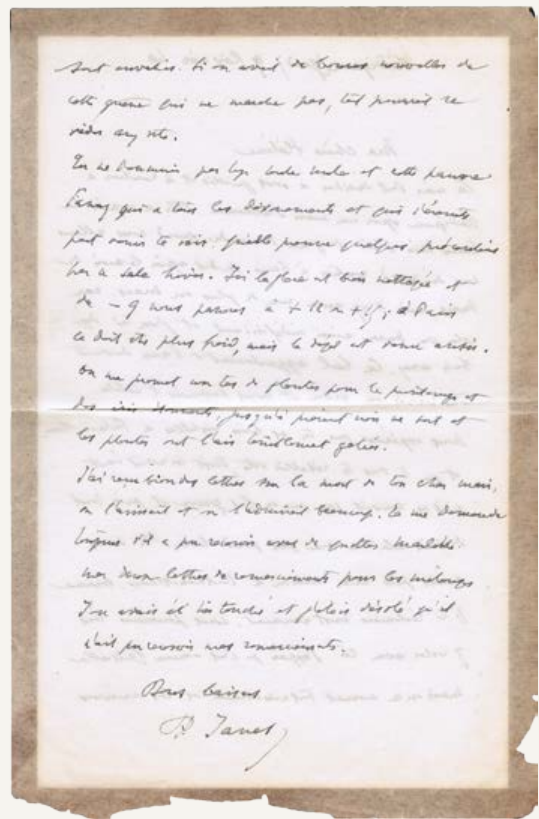 sont envahis. Si on avait de bonnes nouvelles de
cette guerre qui ne marche pas, tout pourrait se
vite.
Tu ne donnes pas et cette pauvre
Fanny qui a tous les et qui
peut venir te voir. quelque pour quelques précautions
par ce sale hiver. Ici la glace est bien nettoyée et
de - 9 nous passons à + 12 ou + 15 ; à Paris
ce doit être plus froid, mais le dégel est venu aussi.
On me promet un tas de plantes pour le printemps et
des iris étonnants, jusqu'à présent rien ne sort et
les plantes ont l'air totalement gelées.
J'ai reçu bien des lettres sur la mort de ton cher mari,
on l'aimait et on l'admirait beaucoup. Je me demande
toujours s'il a pu recevoir avec de pareilles
mes deux lettres de remerciements pour les mélanges
J'en avais été très touché et j'étais désolé qu'il
n'ait pu recevoir mes remerciements.
Bons baisers
P. Janet